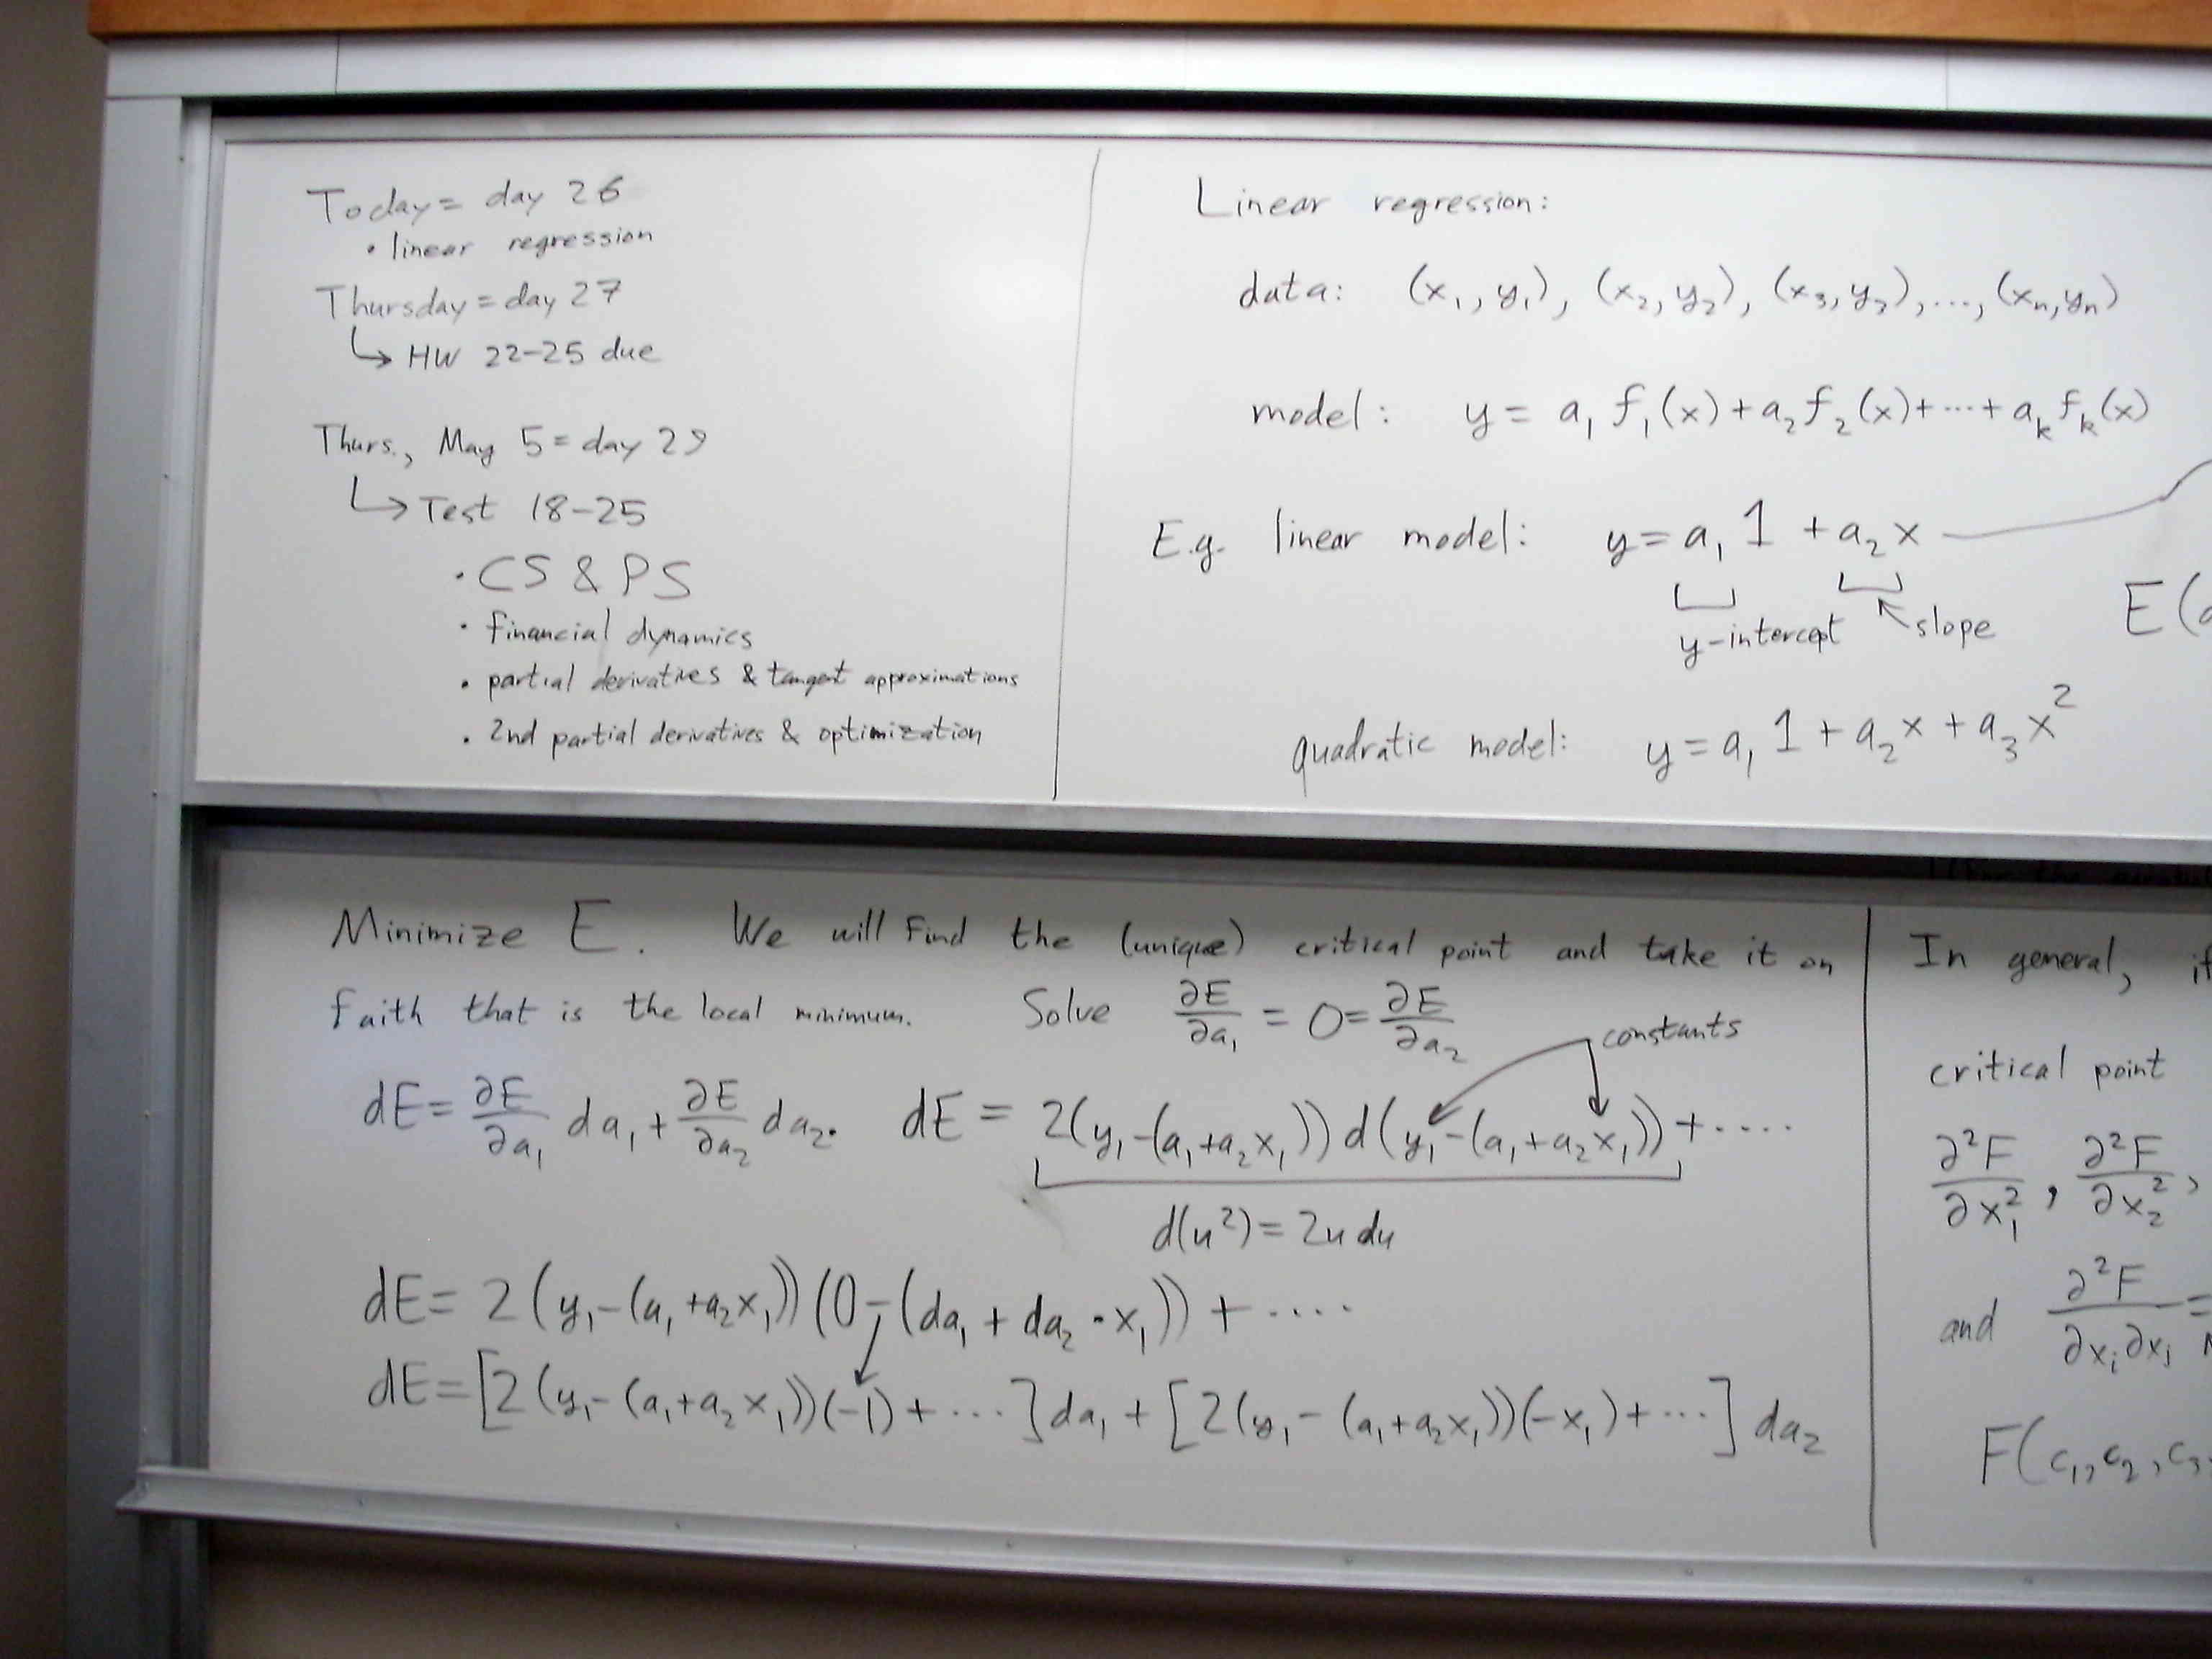 Today = day 26
• linear regression
Thursday = day 27
↳ HW 22-25 due
Thurs., May 5 = day 29
↳ Test 18-25
• CS & PS
• financial dynamics
• partial derivatives & tangent approximations
• 2nd partial derivatives & optimization
Linear regression:
data: (x₁, y₁), (x₂, y₂), (x₃, y₃), ..., (xₙ, yₙ)
model: y = a₁ f₁(x) + a₂ f₂(x) + ··· + aₖ fₖ(x)
E.g. linear model: y = a₁ 1 + a₂ x
y-intercept slope
E(
quadratic model: y = a₁ 1 + a₂ x + a₃ x²
Minimize E. We will find the (unique) critical point and take it on
faith that is the local minimum. Solve ∂E/∂a₁ = 0 = ∂E/∂a₂
constants
dE = ∂E/∂a₁ da₁ + ∂E/∂a₂ da₂. dE = 2(y₁-(a₁+a₂x₁)) d(y₁-(a₁+a₂x₁)) + ····
d(u²) = 2u du
dE = 2(y₁-(a₁+a₂x₁))(0-(da₁ + da₂·x₁)) + ····
dE = [2(y₁-(a₁+a₂x₁))(-1) + ···] da₁ + [2(y₁-(a₁+a₂x₁))(-x₁) + ···] da₂
In general, if
critical point
∂²F/∂x₁², ∂²F/∂x₂²,
and ∂²F/∂xᵢ∂xⱼ =
F(c₁, c₂, c₃